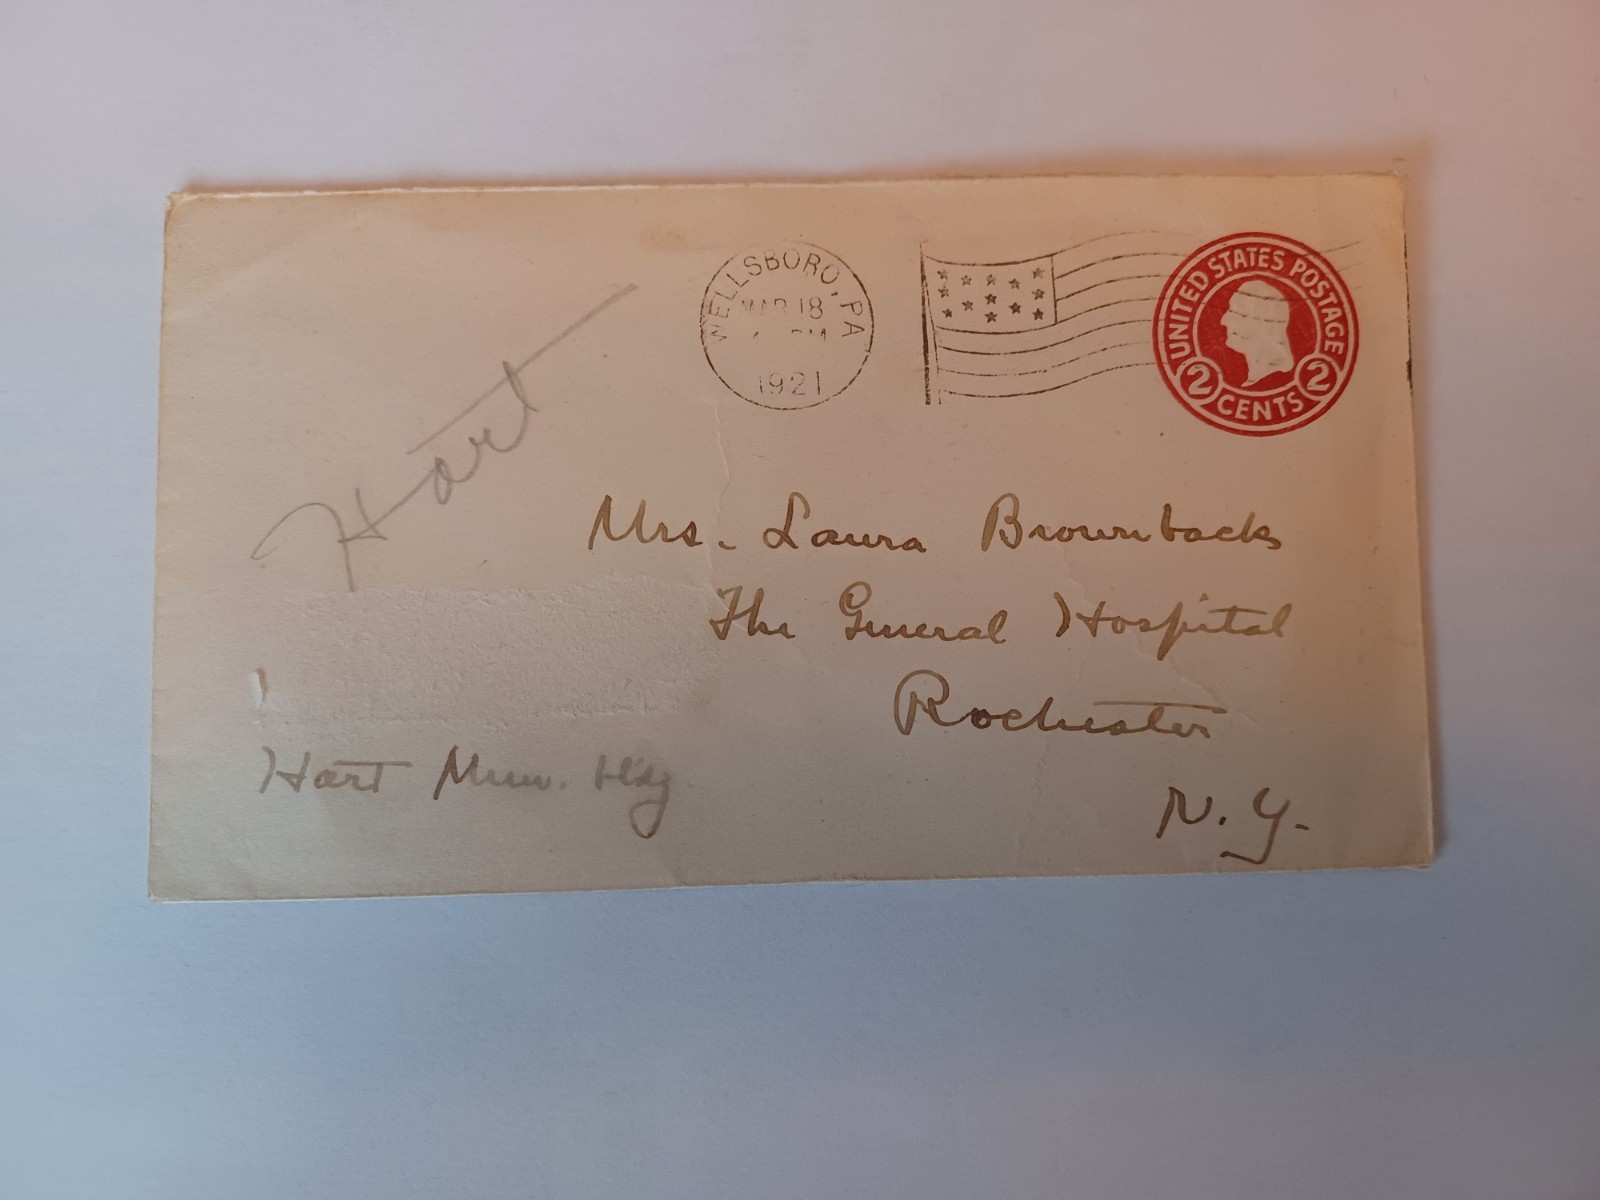 Hart
WELLSBORO, PA
MAR 18
1921
UNITED STATES POSTAGE
2 CENTS 2
Mrs. Laura Brownback
The General Hospital
Rochester
N. Y.
Hart Mem. bldg